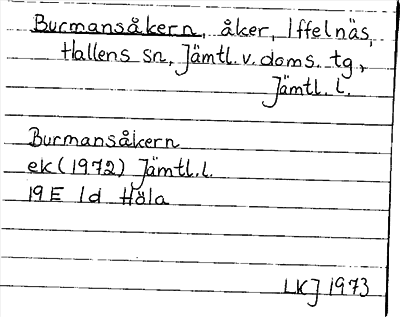 Burmansåkern, åker, Iffelnäs,
Hallens sn, Jämtl.v.doms. tg,
Jämtl. l.
Burmansåkern
ek (1972) Jämtl.l.
19E 1d Höla
LKJ 1973